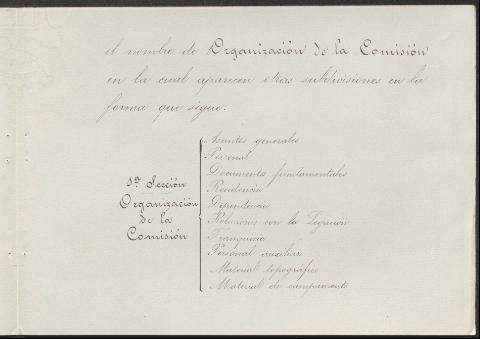 el nombre de Organización de la Comisión
en la cual aparecen otras subdivisiones en la
forma que sigue:
1ª Sección
Organización
de la
Comisión
Asuntos generales
Personal
Documentos fundamentales
Residencia
Dependencia
Relaciones con la Legación
Franquicia
Personal auxiliar
Material topográfico
Material de campamento